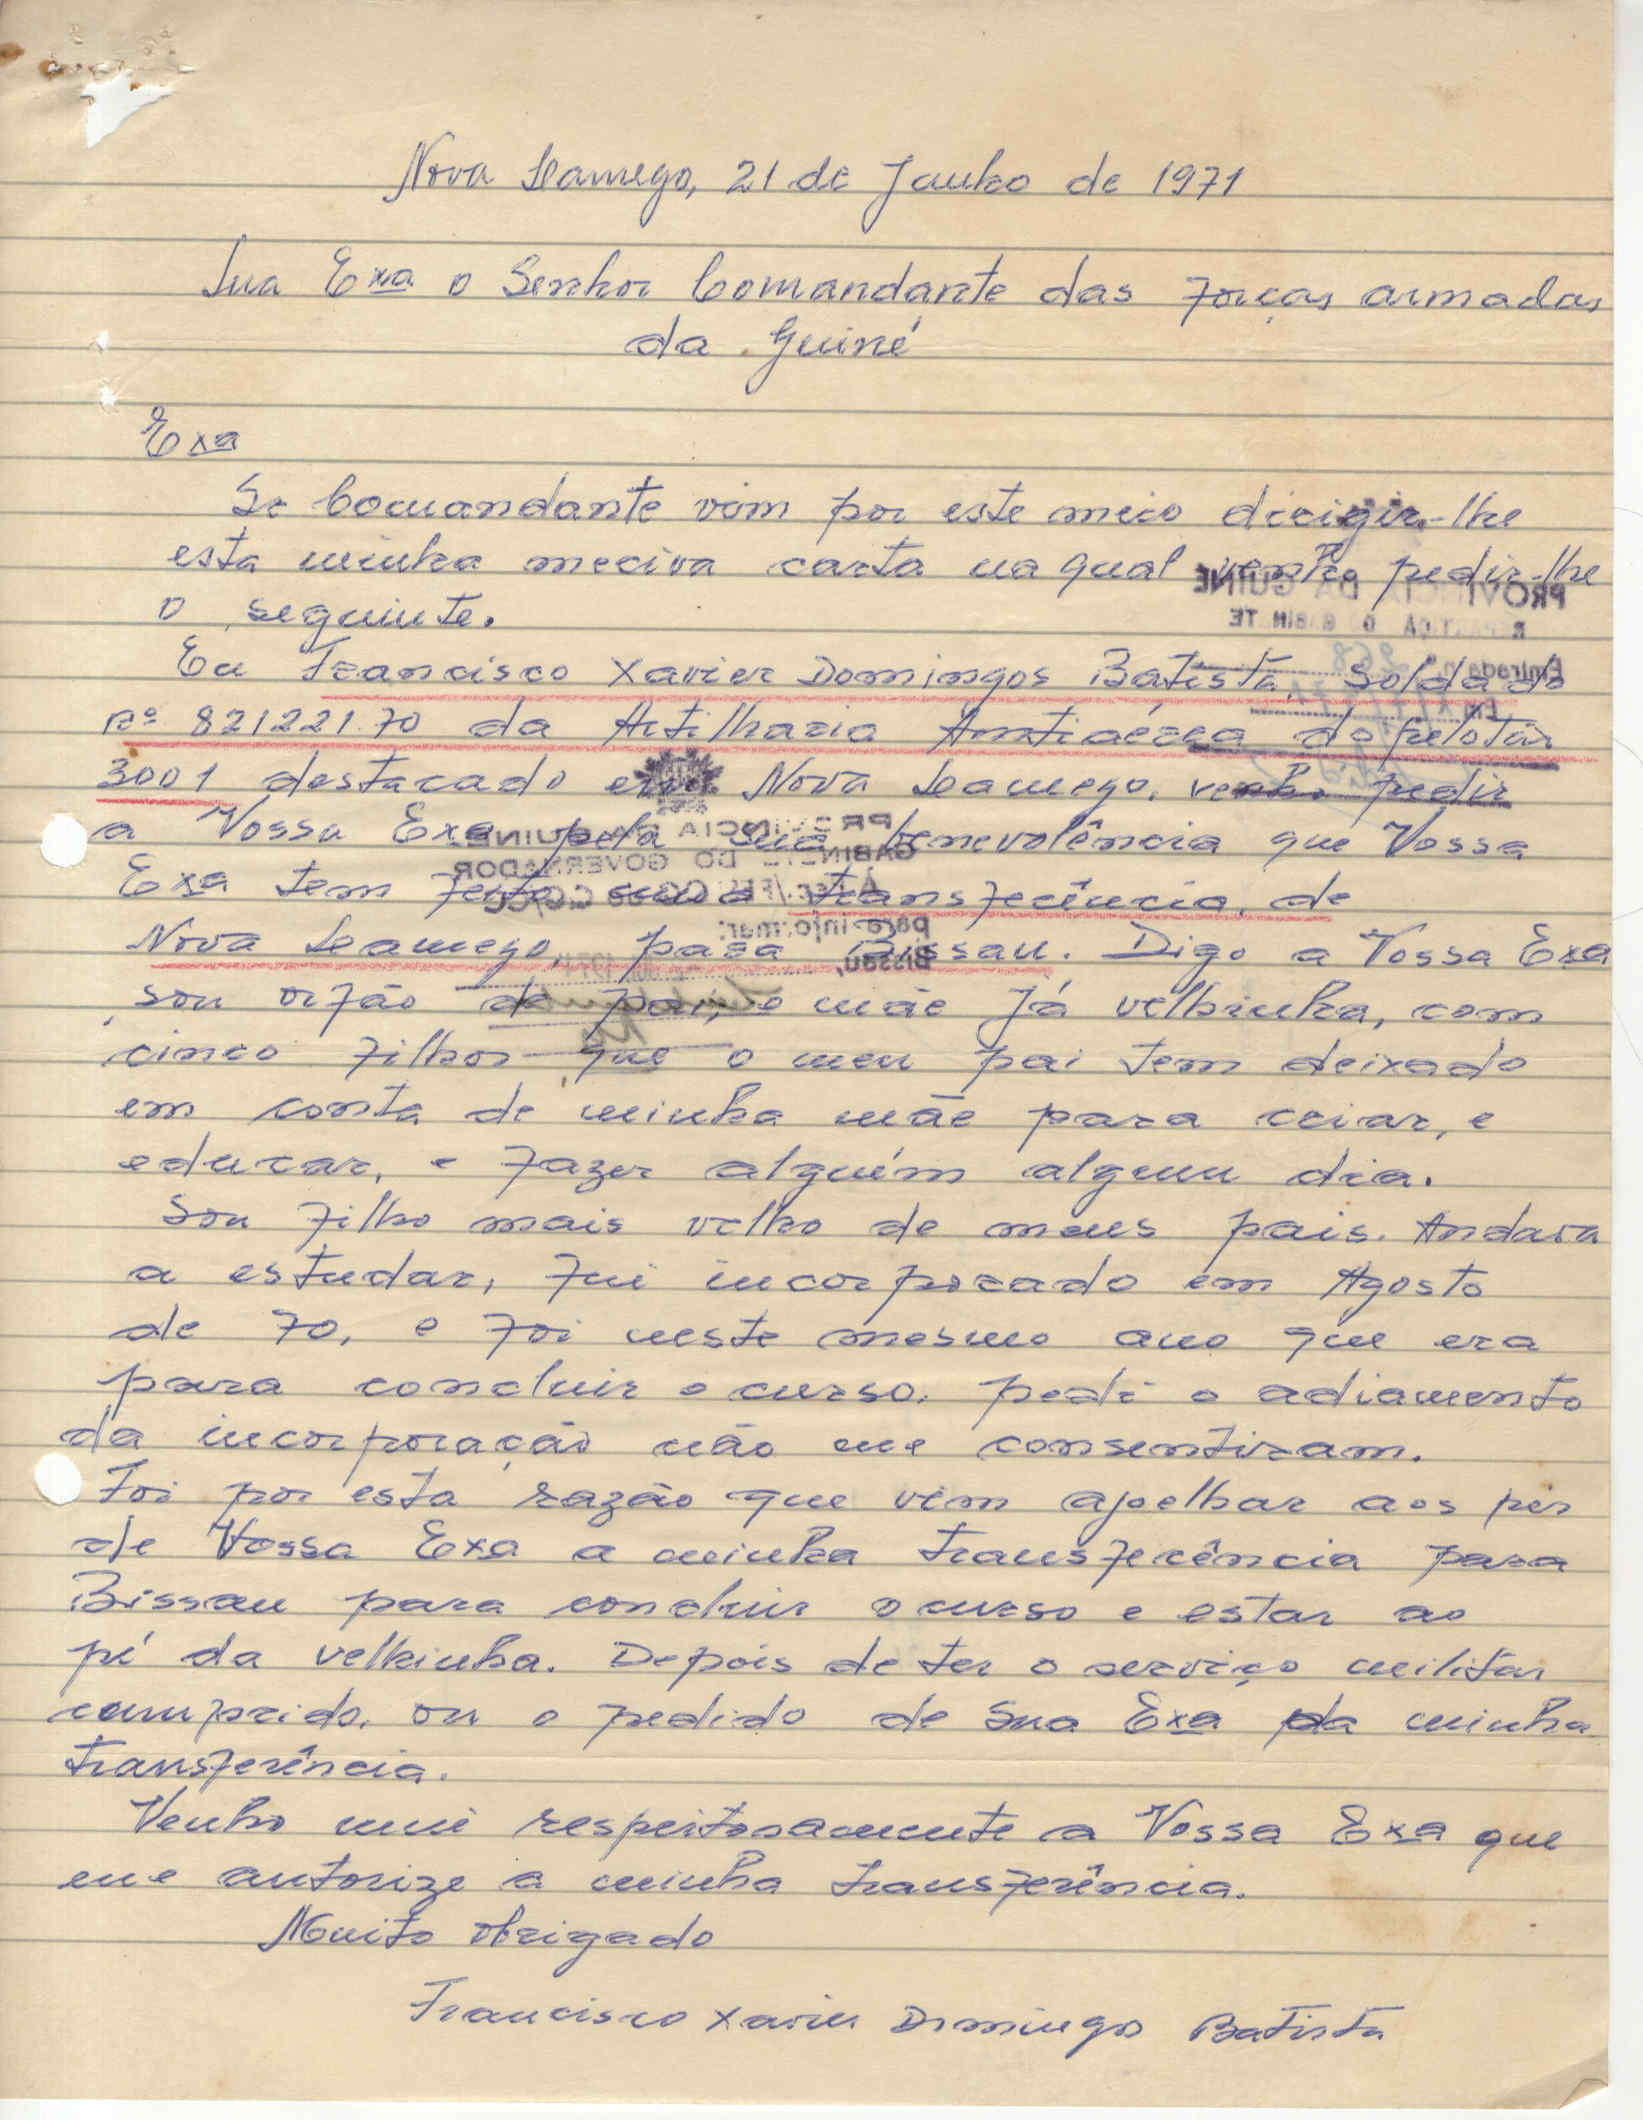 Nova Lamego, 21 de Junho de 1971
Sua Exa o Senhor Comandante das Forças armadas
da Guiné
Exa
Sr Comandante vim por este meio dirigir-lhe
esta minha meciva carta na qual venho pedir-lhe
o seguinte.
Eu Francisco Xavier Domingos Batista. Soldado
nº 821221.70 da Artilharia Antiaérea do pelotão
3001 destacado em Nova Lamego. venho pedir
a Vossa Exa pela sua benevolência que Vossa
Exa tem transferência, de
Nova Lamego, para Bissau. Digo a Vossa Exa
sou orfão de pai, e mãe Já velhinha, com
cinco filhos que o meu pai tem deixado
em conta de minha mãe para criar, e
educar, e fazer alguém algum dia.
Sou filho mais velho de meus pais. Andava
a estudar, fui incorporado em Agosto
de 70, e foi neste mesmo ano que era
para concluir o curso. pedi o adiamento
da incorporação não me consentiram.
Foi por esta razão que vim ajoelhar aos pes
de Vossa Exa a minha transferência para
Bissau para concluir o curso e estar ao
pé da velhinha. Depois de ter o serviço militar
cumprido. ou o pedido de Sua Exa da minha
transferência.
Venho mui respeitosamente a Vossa Exa que
me autorize a minha transferência.
Muito obrigado
Francisco Xavier Domingos Batista
PROVÍNCIA DA GUINÉ
REPARTIÇÃO DO GABINETE
Entrada nº 268
Em
PROVÍNCIA DA GUINÉ
GABINETE DO GOVERNADOR
para informar.
Bissau,